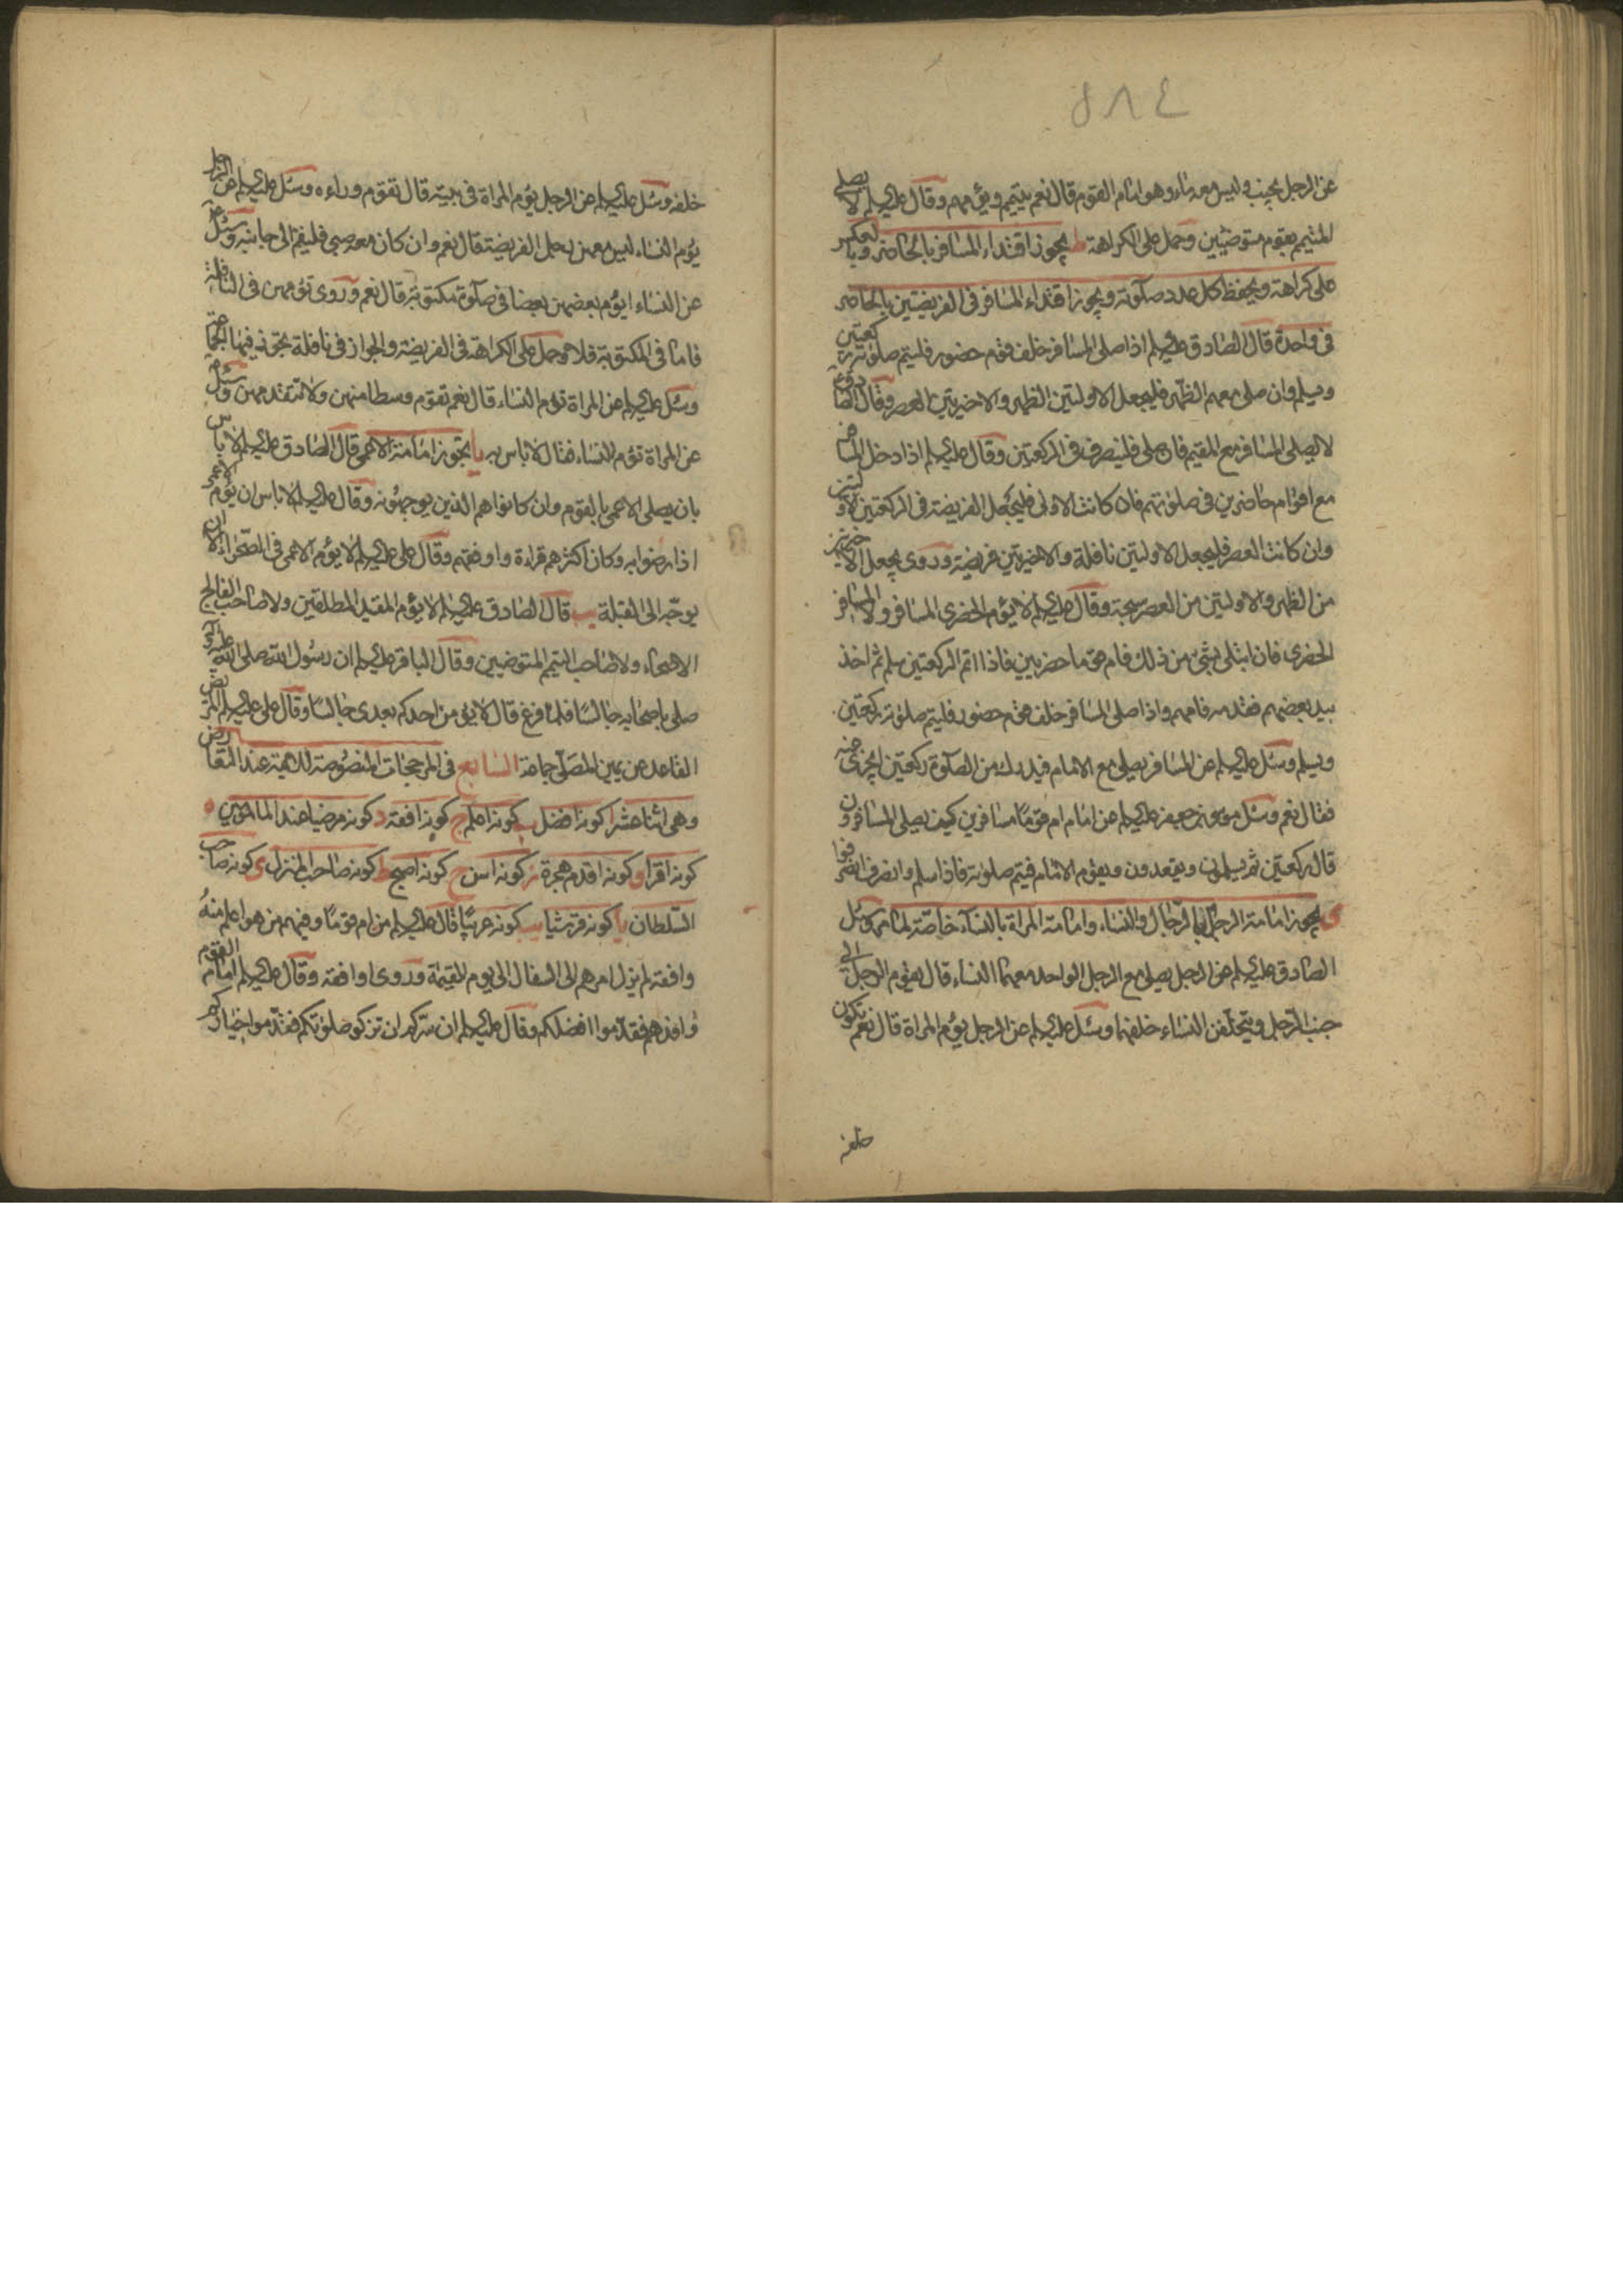 ٤٨٥
عن الرجل يجنب وليس معه ماء وهو امام القوم قال نعم يتيمم ويؤمهم وقال عليه السلم لا يصلى
المتيمم بقوم متوضيين وحمل على الكراهة ط يجوز اقتداء المسافر بالحاضر وبالعكس
على كراهة ويحفظ كل عدد صلوته ويجوز اقتداء المسافر فى الفريضتين بالحاضر
فى واحدة قال الصادق عليه السلم اذا صلى المسافر خلف قوم حضور فليتم صلوته ركعتين
ويسلم وان صلى معهم الظهر فليجعل الاولتين الظهر والاخيرتين العصر وقال الصادق ع
لا يصلى المسافر مع المقيم فان صلى فلينصرف فى الركعتين وقال عليه السلم اذا دخل المسافر
مع اقوام حاضرين فى صلوتهم فان كانت الاولى فليجعل الفريضة فى الركعتين الاولتين
وان كانت العصر فليجعل الاولتين نافلة والاخيرتين فريضة وروى يجعل الاخيرتين
من الظهر والاولتين من العصر سبحة وقال عليه السلم لا يؤم الحضرى المسافر ولا المسافر
الحضرى فان ابتلى بشىء من ذلك فام قوما حضريين فاذا اتم الركعتين سلم ثم اخذ
بيد بعضهم فقدمه فامهم واذا صلى المسافر خلف قوم حضور فليتم صلوته ركعتين
ويسلم وسئل عليه السلم عن المسافر يصلى مع الامام فيدرك من الصلوة ركعتين ايجزى عنه
فقال نعم وسئل موسى بن جعفر عليه السلم عن امام ام قوما مسافرين كيف يصلى المسافرون
قال ركعتين ثم يسلمون ويقعدون ويقوم الامام فيتم صلوته فاذا سلم وانصرف انصرفوا
ى يجوز امامة الرجل بالرجال والنساء وامامة المراة بالنساء خاصة لما مر وسئل
الصادق عليه السلم عن الرجل يصلى مع الرجل الواحد معهما النساء قال يقوم الرجل الى
جنب الرجل ويتخلفن النساء خلفهما وسئل عليه السلم عن الرجل يؤم المراة قال نعم تكون
خلفه
خلفه وسئل عليه السلم عن الرجل يؤم المراة فى بيته قال تقوم وراءه وسئل عليه السلم عن الرجل
يؤم النساء ليس معهن رجل الفريضة قال نعم وان كان معه صبى فليقم الى جانبه وسئل ع
عن النساء ايؤم بعضهن بعضا فى صلوة مكتوبة قال نعم وروى تؤمهن فى النافلة
فاما فى المكتوبة فلا وحمل على الكراهة فى الفريضة والجواز فى نافلة يجوز فيها الجماعة
وسئل عليه السلم عن المراة تؤم النساء قال نعم تقوم وسطا منهن ولا تتقدمهن وسئل ع
عن المراة تؤم النساء فقال لا باس به يا يجوز امامة الاعمى قال الصادق عليه السلم لا باس
بان يصلى الاعمى بالقوم وان كانوا هم الذين يوجهونه وقال عليه السلم لا باس ان يؤم الاعمى
اذا رضوا به وكان اكثرهم قراءة وافقههم وقال على عليه السلم لا يؤم الاعمى فى الصحراء الا ان
يوجه الى القبلة يب قال الصادق عليه السلم لا يؤم المقيد المطلقين ولا صاحب الفالج
الاصحاء ولا صاحب التيمم المتوضيين وقال الباقر عليه السلم ان رسول الله صلى الله عليه وآله
صلى باصحابه جالسا فلما فرغ قال لا يؤمن احدكم بعدى جالسا وقال على عليه السلم المريض
القاعد عن يمين المصلى جماعة السابع فى المرجحات المنصوصة للائمة عند التعارض
وهى اثنا عشر ا كونه افضل ب كونه اعلم ج كونه افقه د كونه مرضيا عند المامومين ه
كونه اقرا و كونه اقدم هجرة ز كونه اسن ح كونه اصبح ط كونه صاحب المنزل ى كونه صاحب
السلطان يا كونه قرشيا يب كونه عربيا قال عليه السلم من ام قوما وفيهم من هو اعلم منه
وافقه لم يزل امرهم الى السفال الى يوم القيمة وروى او افقه وقال عليه السلم امام القوم
وافدهم فقدموا افضلكم وقال عليه السلم ان سركم ان تزكو صلوتكم فقدموا خياركم